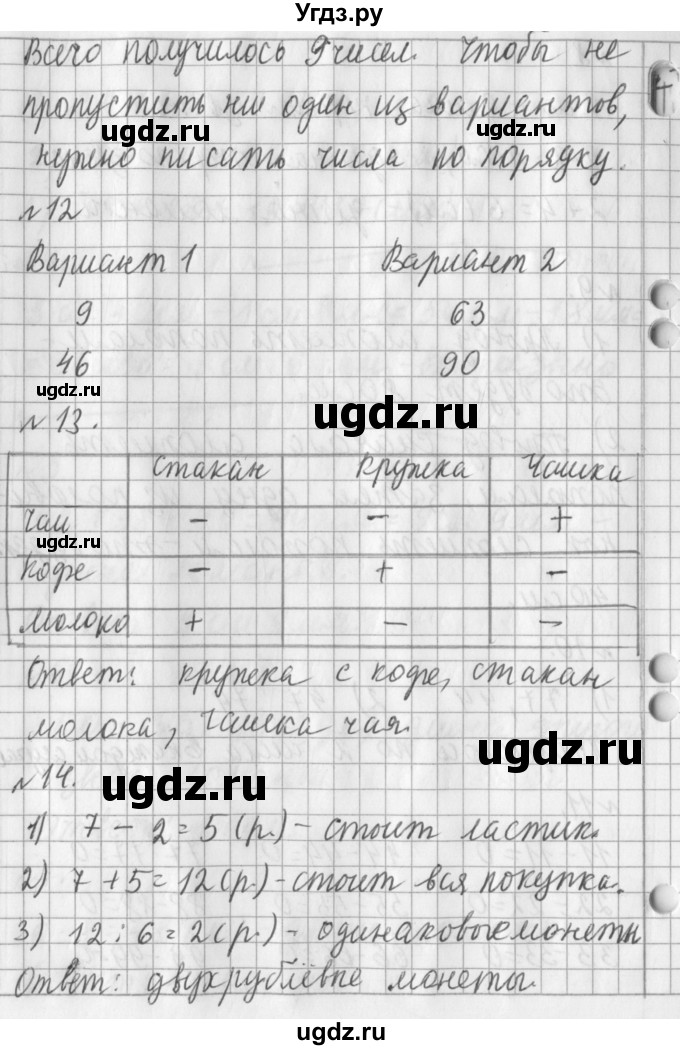 Угдз.ру
Всего получилось 9 чисел. Чтобы не
пропустить ни один из вариантов,
ugdz.ru ugdz.ru
нужно писать числа по порядку.
№12
Вариант 1 Вариант 2
9 63
46 90
ugdz.ru
№13. ugdz.ru
стакан кружка чашка
чай - - +
ugdz.ru
кофе - + -
молоко + - -
Ответ: кружка с кофе, стакан
молока, чашка чая.
ugdz.ru
№14. ugdz.ru
1) 7 - 2 = 5 (р.) - стоит ластик.
2) 7 + 5 = 12 (р.) - стоит вся покупка.
3) 12 : 6 = 2 (р.) - одинаковые монеты
Ответ: двухрублёвые монеты.
ugdz.ru